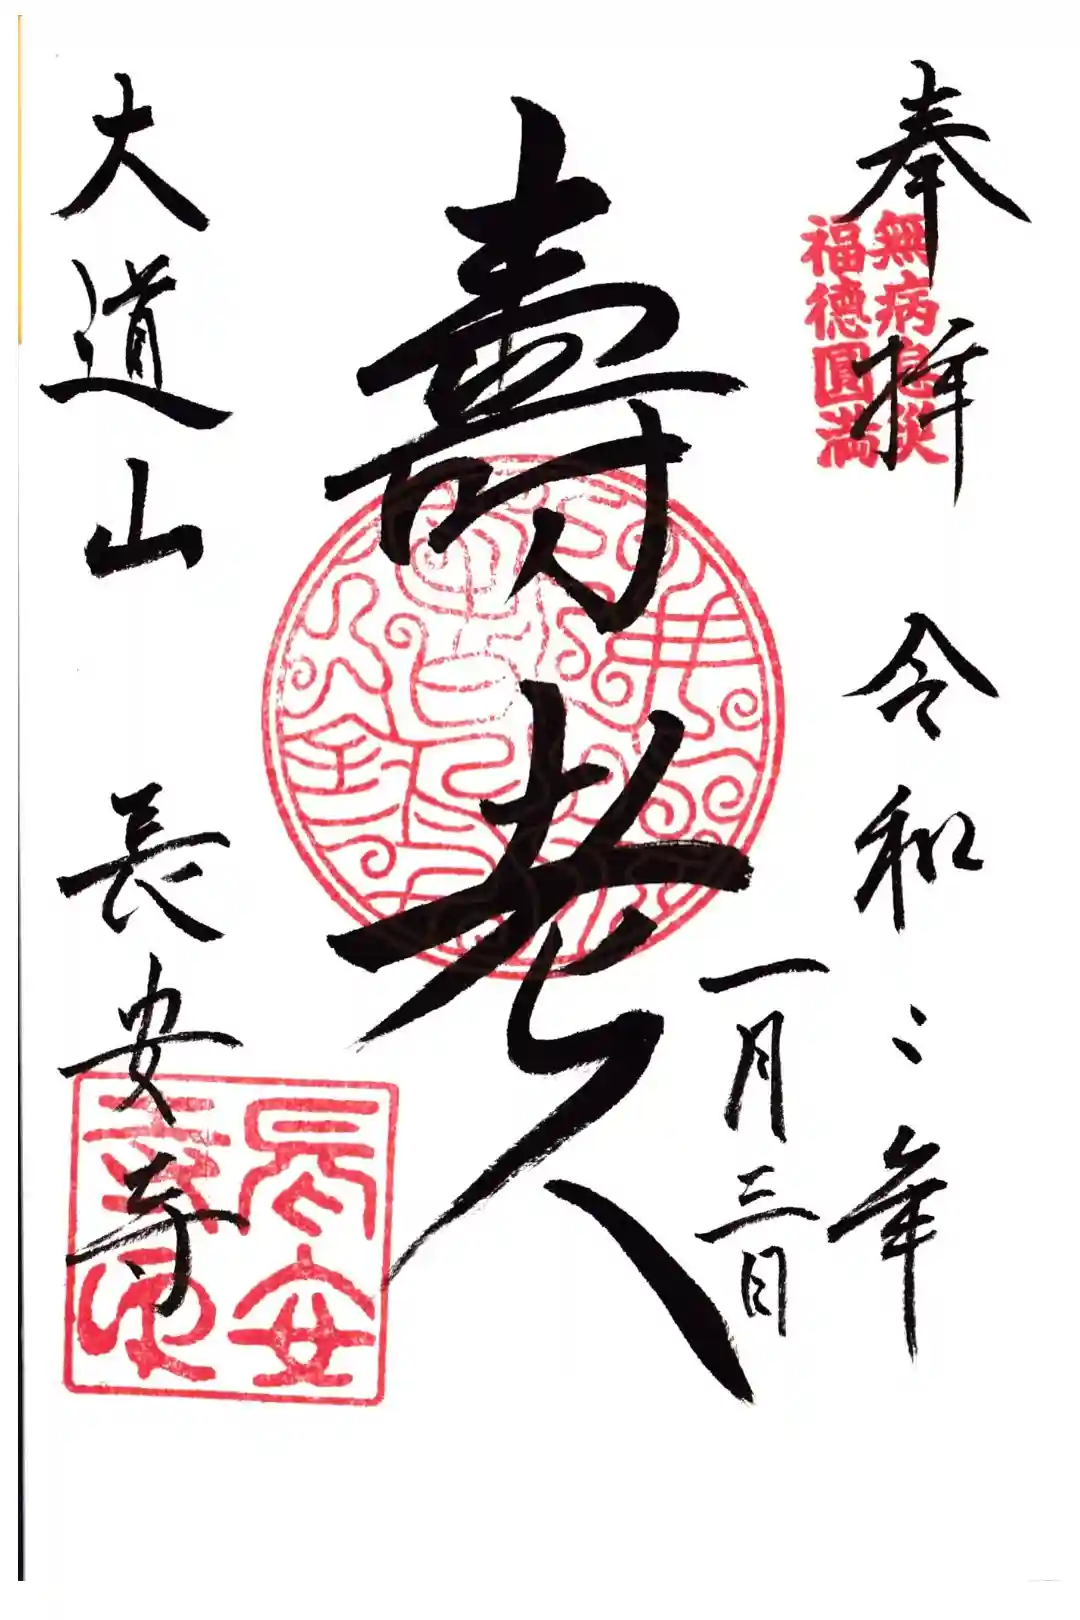 奉拝
無病息災
福徳圓満
令和二年
一月三日
壽老人
大道山
長安寺